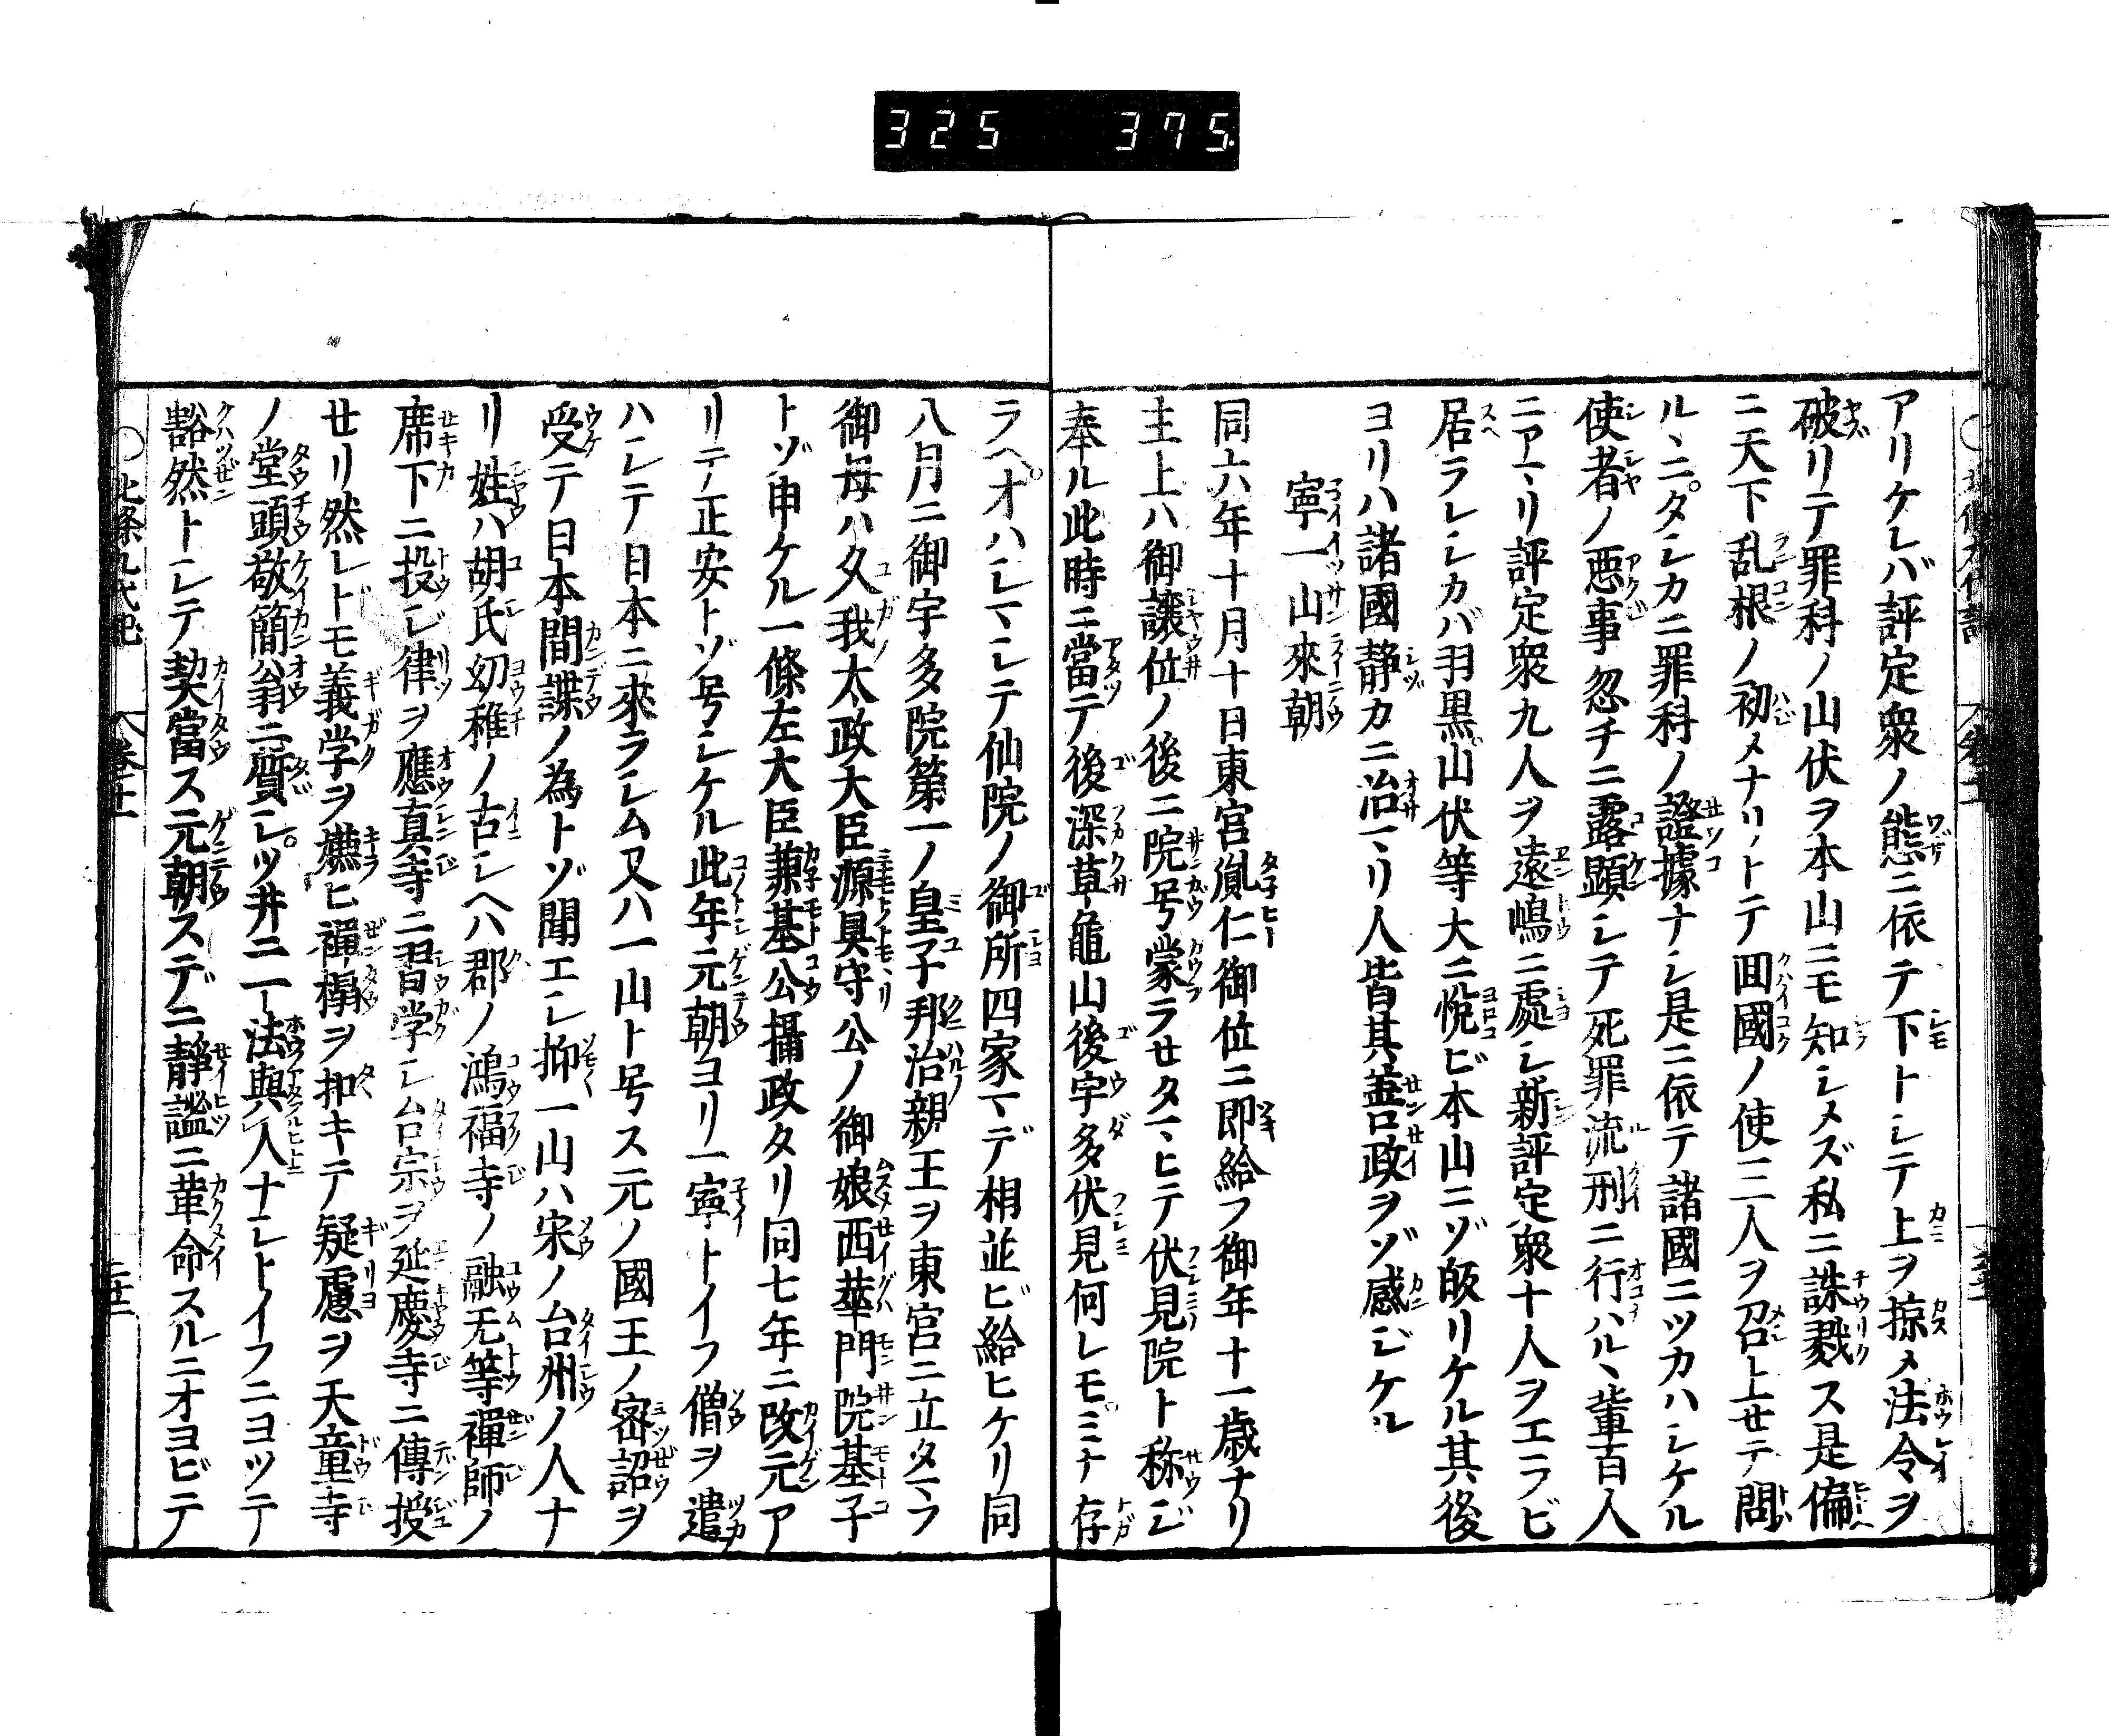 325 375.
アリケレバ評定衆ノ態ニ依テ下トシテ上ヲ掠メ法令ヲ
破リテ罪科ノ山伏ヲ本山ニモ知シメズ私ニ誅戮ス是偏
ニ天下乱根ノ初メナリトテ囬國ノ使三人ヲ召上セテ問
ルヽニタシカニ罪科ノ證據ナシ是ニ依テ諸國ニツカハシケル
使者ノ悪事忽チニ露顕シテ死罪流刑ニ行ハルヽ輩百人
ニアマリ評定衆九人ヲ遠嶋ニ處シ新評定衆十人ヲエラビ
居ラレシカバ羽黒山伏等大ニ悦ビ本山ニゾ皈リケル其後
ヨリハ諸國静カニ治マリ人皆其善政ヲゾ感ジケル
寧一山來朝
同六年十月十日東宮胤仁御位ニ即給フ御年十一歳ナリ
主上ハ御讓位ノ後ニ院号蒙ラセタマヒテ伏見院ト称ジ
奉ル此時ニ當テ後深草龜山後宇多伏見何レモミナ存
ラヘオハシマシテ仙院ノ御所四家マデ相並ビ給ヒケリ同
八月ニ御宇多院第一ノ皇子邦治親王ヲ東宮ニ立タマフ
御母ハ久我太政大臣源具守公ノ御娘西華門院基子
トゾ申ケル一條左大臣兼基公攝政タリ同七年ニ改元ア
リテ正安トゾ号シケル此年元朝ヨリ一寧トイフ僧ヲ遣
ハシテ日本ニ來ラシム又ハ一山ト号ス元ノ國王ノ密詔ヲ
受テ日本間諜ノ為トゾ聞エシ抑一山ハ宋ノ台州ノ人ナ
リ姓ハ胡氏幼稚ノ古シヘハ郡ノ鴻福寺ノ融无等禪師ノ
席下ニ投シ律ヲ應真寺ニ習学シ台宗ヲ延慶寺ニ傳授
セリ然レドモ義学ヲ嫌ヒ禪榻ヲ扣キテ疑慮ヲ天童寺
ノ堂頭敬簡翁ニ質シツ井ニ一法與人ナシトイフニヨツテ
豁然トシテ契當ス元朝スデニ靜謐ニ革命スルニオヨビテ
○北條九代記 卷十一